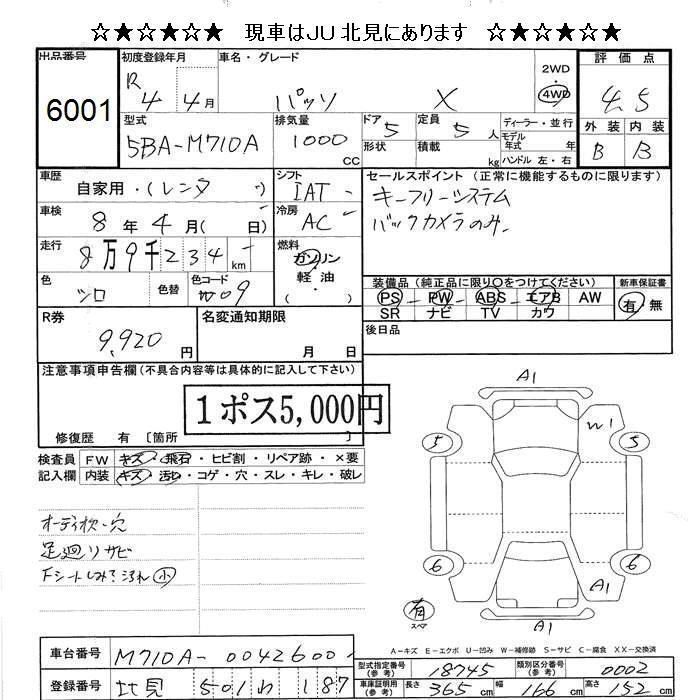 ☆★☆★☆★☆ 現車はJU北見にあります ☆★☆★☆★☆
出品番号 初度登録年月 車名・グレード 2WD 評価点
6001 R4 4月 パッソ X 4WD 4.5
型式 排気量 ドア 定員 ディーラー・並行 外装 内装
5BA-M710A 1000 CC 5 5人 モデル年式 年 B B
形状 積載 kg ハンドル 左・右
車歴 シフト セールスポイント (正常に機能するものに限ります)
自家用・(レンタ ) IAT キーフリーシステム
車検 冷房 バックカメラのみ.
8年4月( 日) AC
走行 燃料
8万9千234km ガソリン
軽・油
( )
色 色替 色コード 装備品 (純正品に限り○をつけてください) 新車保証書
シロ W09 PS PW ABS エアB AW 有 無
SR ナビ TV カワ
R券 名変通知期限 後日品
9,920円 月 日
注意事項申告欄(不具合内容等は具体的に記入して下さい)
1ポス5,000円
修復歴 有 [箇所 ]
検査員 FW キズ・飛石・ヒビ割・リペア跡・×要
記入欄 内装 キズ・汚れ・コゲ・穴・スレ・キレ・破レ
A1
W1
5 5
オーディオ欠・穴
足廻りサビ
Fシートしみ?汚れ 小
6 6
A1
有
スペア
A1
A-キズ E-エクボ U-凹み W-補修跡 S-サビ C-腐食 XX-交換済
車台番号 M710A-0042600 型式指定番号(参考) 18745 類別区分番号(参考) 0002
登録番号 北見 501 わ 187 車庫証明用(参考) 長さ 365cm 幅 166cm 高さ 152cm